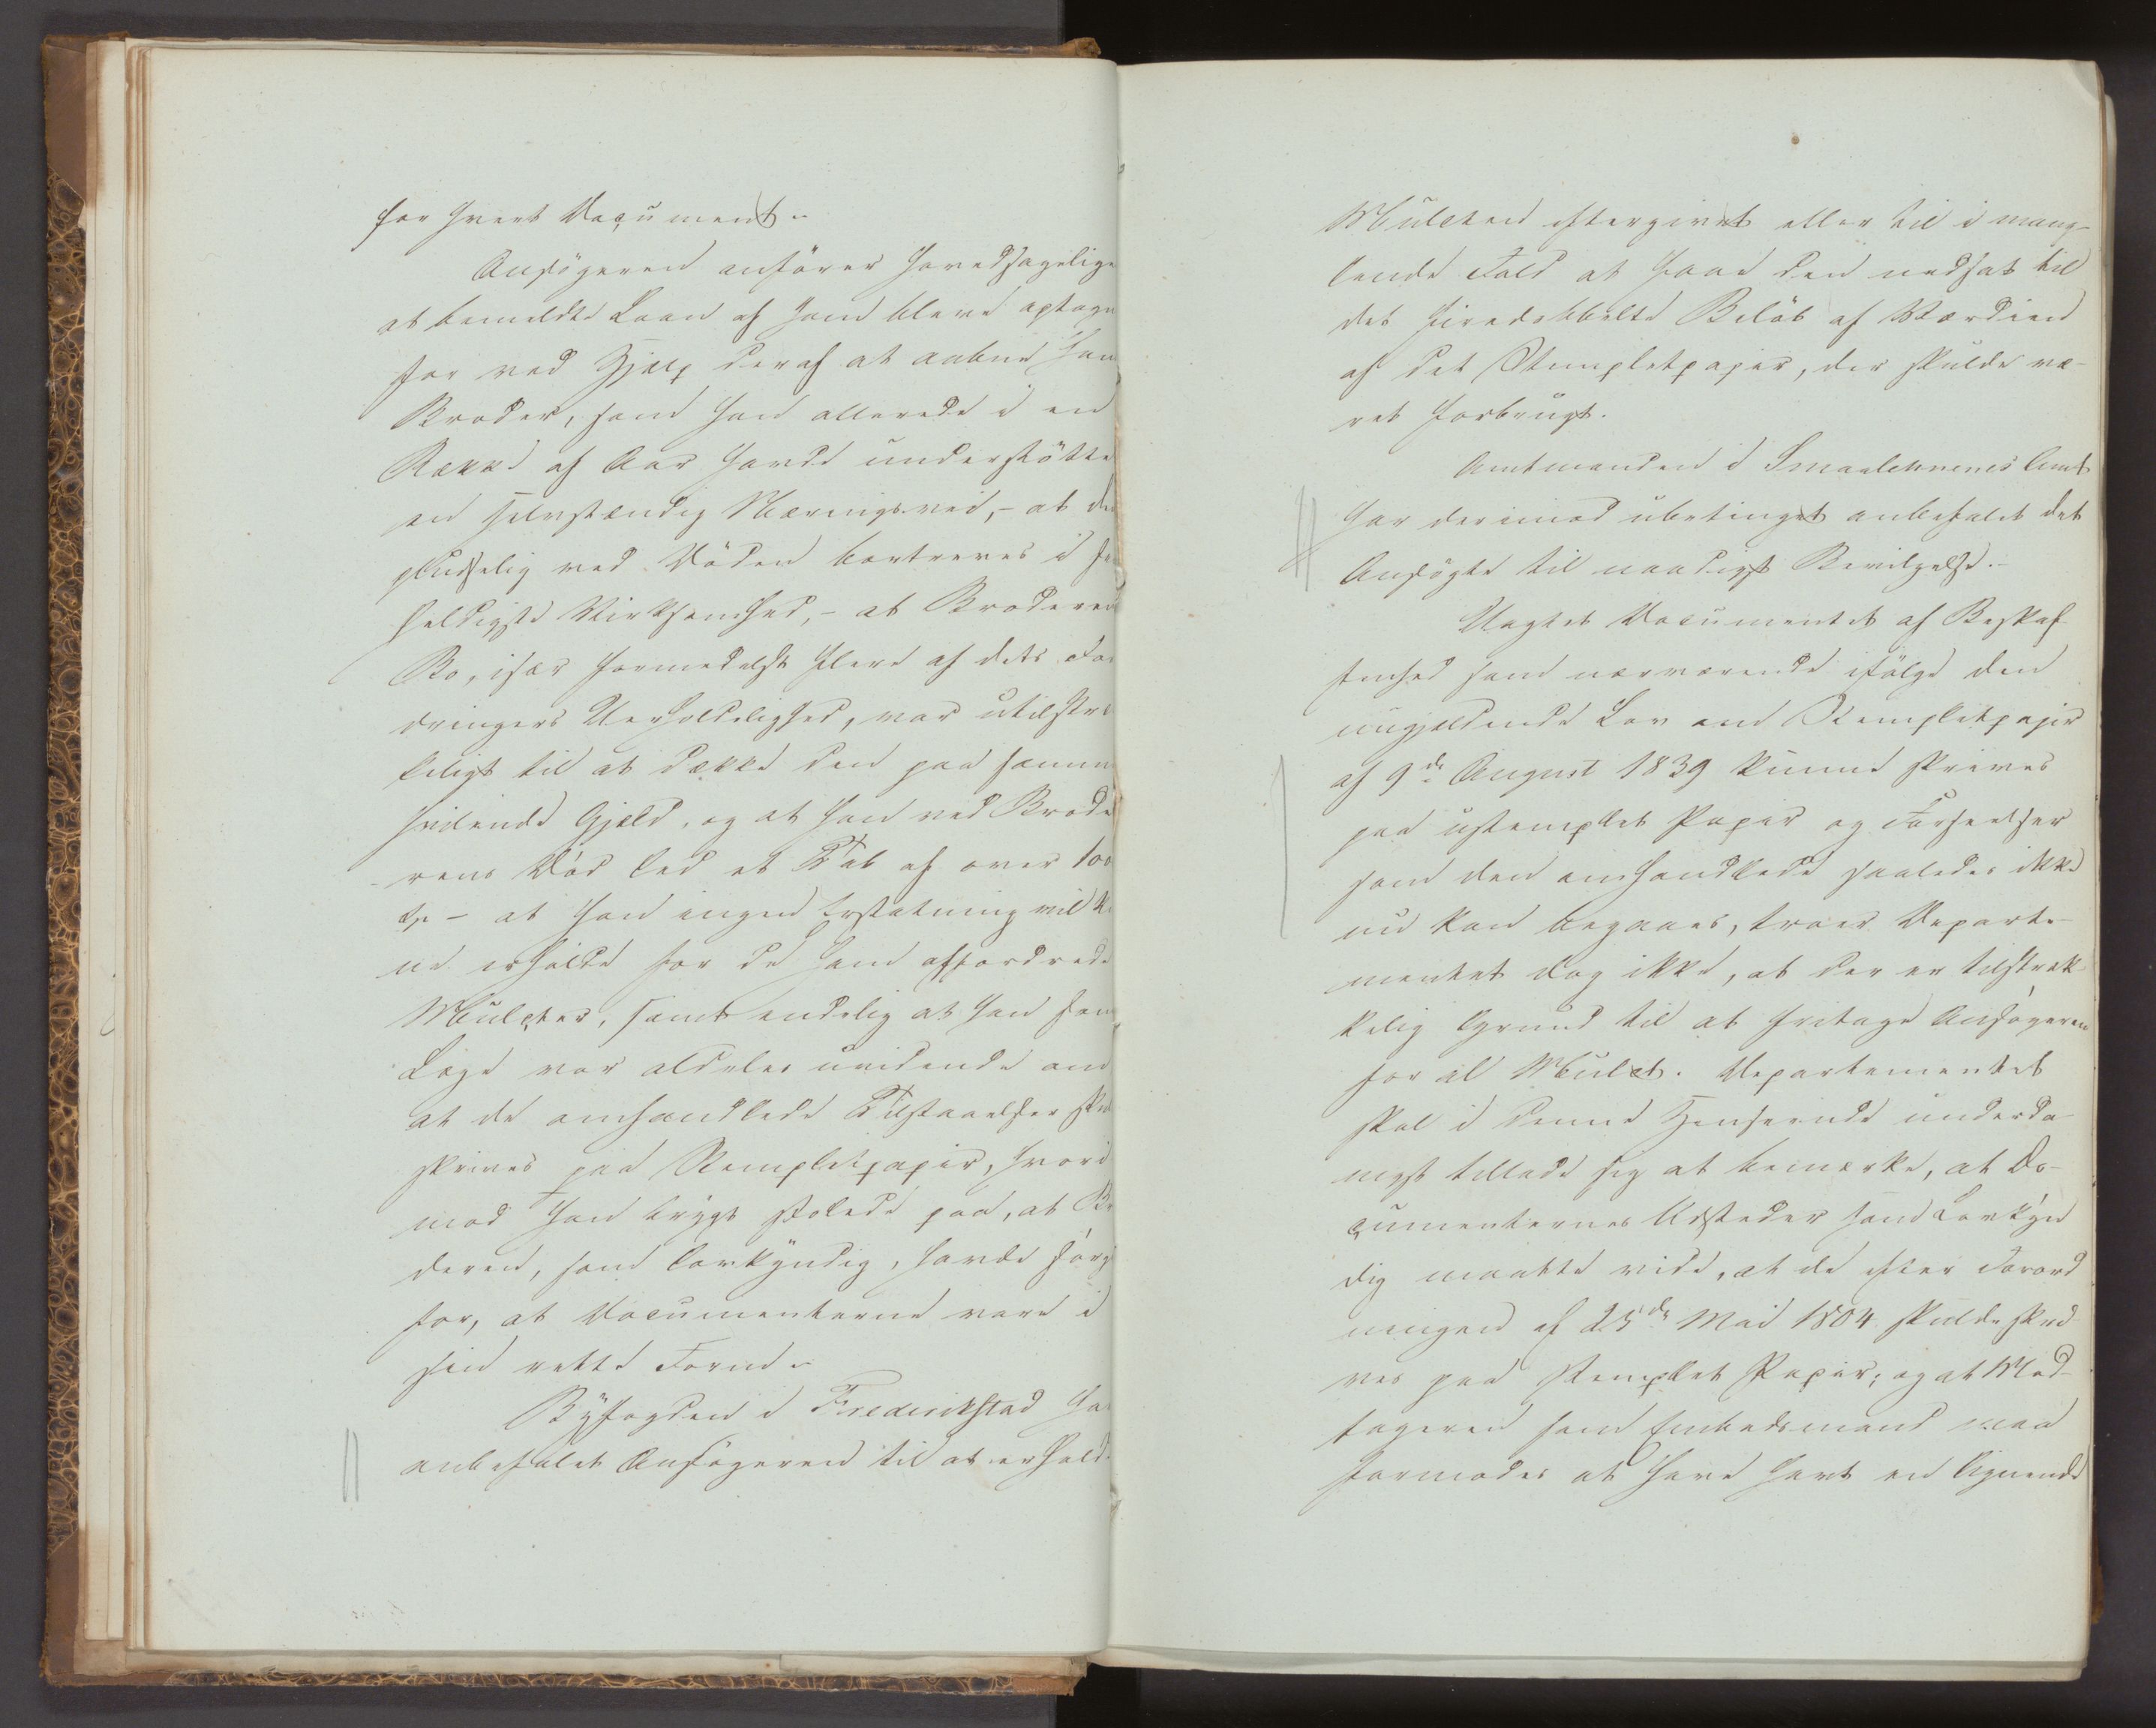 for hvert Document.
Ansögeren anförer hovedsagelige
at bemeldte Laan af ham bleve optagn
for ved Hjelp deraf at aabne han
Broder, som han allerede i en
Række af Aar havde understötte
en selvstændig Næringsvei, - at de
pludselig ved Döden bortreves i
heldigste Virksomhed, - at Broderen
Bo, især formedelst flere af dets For
dringers Uerholdelighed, var utilstræ
keligt til at dække den paa samm
hvilende Gjeld, og at han ved Brode
rens Död led et Tab af over 100
at han ingen Erstatning vil k
ne erholde for de ham affordrede
Mulcter, samt endelig at han som
Læge var aldeles uvidende om
at de omhandlede Tilstaaelser sku
skrives paa Stempletpapir, hvori
mod han trygt stolede paa, at Br
deren, som lovkyndig, havde sörg
for, at Documenterne vare i
sin rette Form.
Byfogden i Frederikstad ha
anbefalet Ansögeren til at erhold
Mulcten eftergivet eller til i mang-
lende Fald at faae den nedsat til
det firedobbelte Belöb af Værdien
af det Stempletpapir, der skulde væ-
ret forbrugt.
Amtmanden i Smaalehnenes Amt
har derimod ubetinget anbefalet det
Ansögte til naadigst Bevilgelse.-
Uagtet Documentet af Beskaf
fenhed som nærværende ifölge den
nugjeldende Lov om Stempletpapir
af 9de August 1839 kunne skrives
paa ustemplet Papir og Forseelser
som den omhandlede saaledes ikke
nu kan begaaes, troer Departe-
mentet dog ikke, at der er tilstræk
kelig Grund til at fritage Ansögeren
for al Mulct. Departementet
skal i denne Henseende underda-
nigst tillade sig at bemærke, at Do-
cumenternes Udsteder som Lovkyn
dig maatte vide, at de efter Forord
ningen af 25de Mai 1804 skulde skre
ves paa stemplet Papir; og at Mod-
tageren som Embedsmand maa
formodes at have havt en lignende